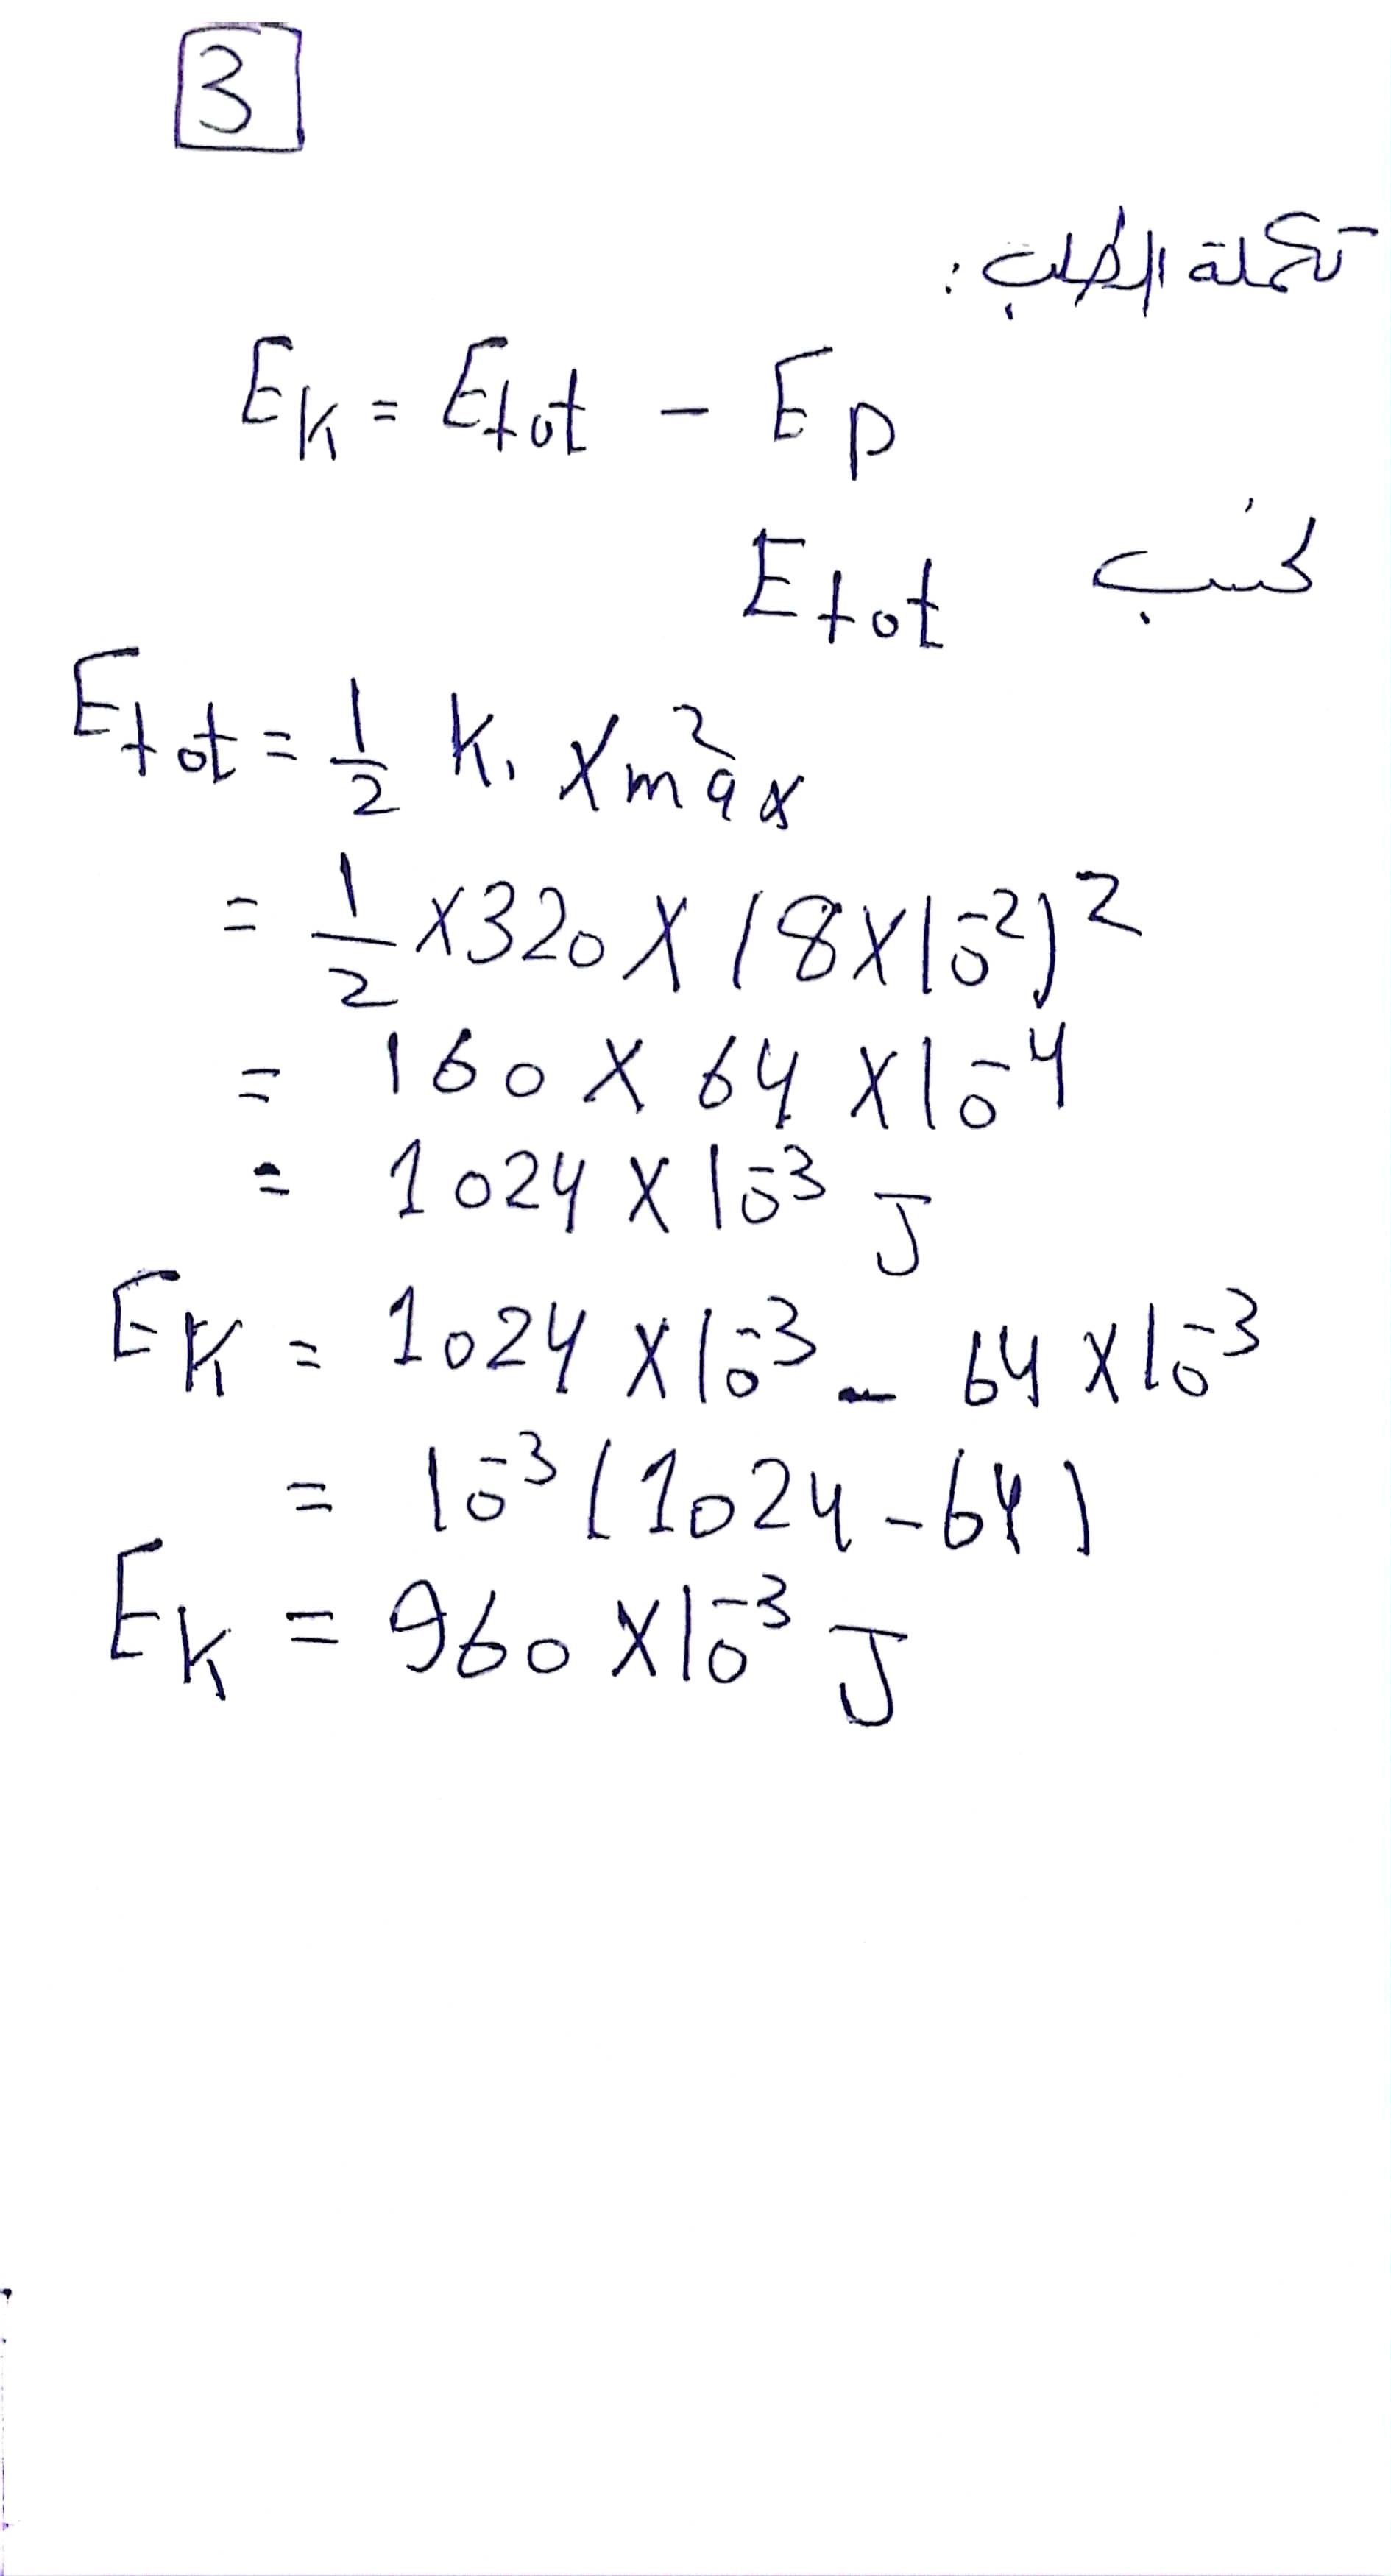 3
تكملة الطلب:
E_K = E_tot - E_p
نحسب E_tot
E_tot = 1/2 k . X_max²
= 1/2 × 320 × (8 × 10⁻²)²
= 160 × 64 × 10⁻⁴
= 1024 × 10⁻³ J
E_K = 1024 × 10⁻³ - 64 × 10⁻³
= 10⁻³ (1024 - 64)
E_K = 960 × 10⁻³ J